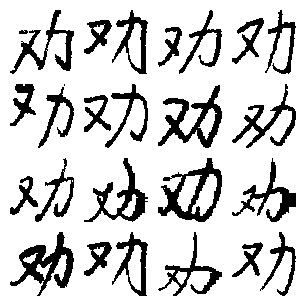 劝劝劝劝
劝劝劝劝
劝劝劝劝
劝劝劝劝